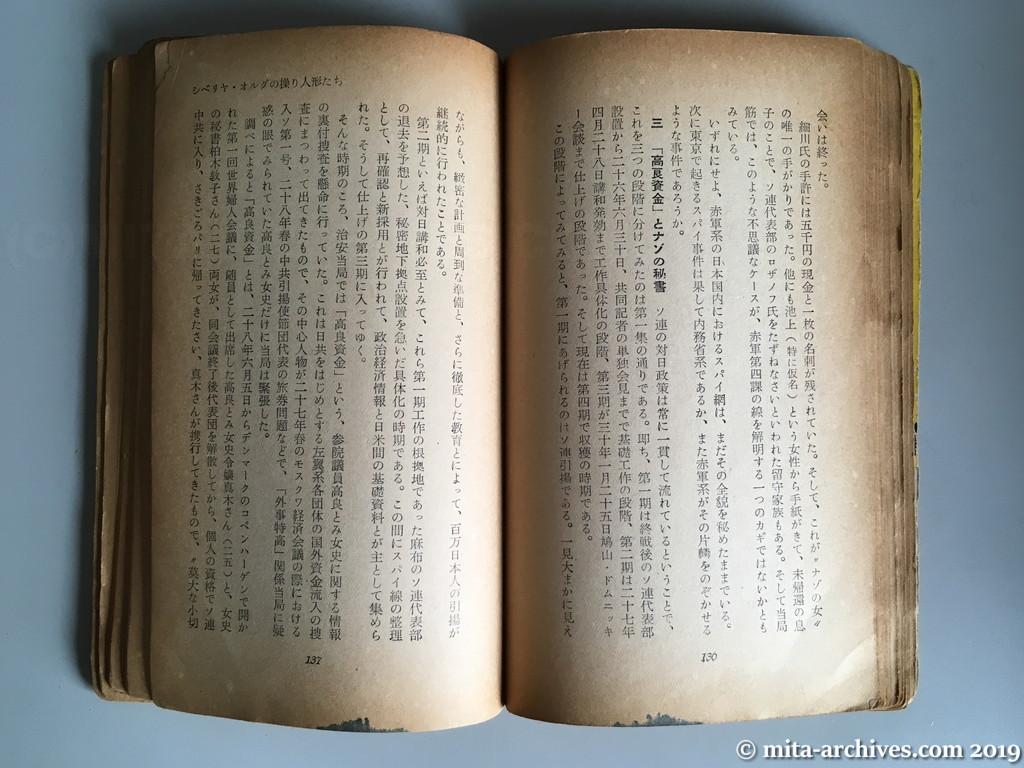 会いは終った。
細川氏の手許には五千円の現金と一枚の名刺が残されていた。そして、これが〃ナゾの女〃
の唯一の手がかりであった。他にも池上（特に仮名）という女性から手紙がきて、未帰還の息
子のことで、ソ連代表部のロザノフ氏をたずねなさいといわれた留守家族もある。そして当局
筋では、このような不思議なケースが、赤軍第四課の線を解明する一つのカギではないかとも
みている。
いずれにせよ、赤軍系の日本国内におけるスパイ網は、まだその全貌を秘めたままでいる。
次に東京で起きるスパイ事件は果して内務省系であるか、また赤軍系がその片鱗をのぞかせる
ような事件であろうか。
三 「高良資金」とナゾの秘書
ソ連の対日政策は常に一貫して流れているということで、
これを三つの段階に分けてみたのは第一集の通りである。即ち、第一期は終戦後のソ連代表部
設置から二十六年六月三十日、共同記者の単独会見までで基礎工作の段階、第二期は二十七年
四月二十八日講和発効まで工作具体化の段階、第三期が三十年一月二十五日鳩山・ドムニッキ
ー会談まで仕上げの段階であった。そして現在は第四期で収穫の時期である。
この段階によってみてみると、第一期にあげられるのはソ連引揚である。一見大まかに見え
130
シベリヤ・オルグの操り人形たち
ながらも、緻密な計画と周到な準備と、さらに徹底した教育とによって、百万日本人の引揚が
継続的に行われたことである。
第二期といえば対日講和必至とみて、これら第一期工作の根拠地であった麻布のソ連代表部
の退去を予想した、秘密地下拠点設置を急いだ具体化の時期である。この間にスパイ線の整理
として、再確認と新採用とが行われて、政治経済情報と日米間の基礎資料とが主として集めら
れた。そうして仕上げの第三期に入ってゆく。
そんな時期のころ、治安当局では「高良資金」という、参院議員高良とみ女史に関する情報
の裏付捜査を懸命に行っていた。これは日共をはじめとする左翼系各団体の国外資金流入の捜
査にまつわって出てきたもので、その中心人物が二十七年春のモスクワ経済会議の際における
入ソ第一号、二十八年春の中共引揚使節団代表の旅券問題などで、「外事特高」関係当局に疑
惑の眼でみられていた高良とみ女史だけに当局は緊張した。
調べによると「高良資金」とは、二十八年六月五日からデンマークのコペンハーゲンで開か
れた第一回世界婦人会議に、随員として出席した高良とみ女史令嬢真木さん（二五）と、女史
の秘書柏木敦子さん（二七）両女が、同会議終了後代表団を解散してから、個人の資格でソ連
中共に入り、さきごろパリに帰ってきたさい、真木さんが携行してきたもので、〃莫大な小切
137
© mita-archives.com 2019